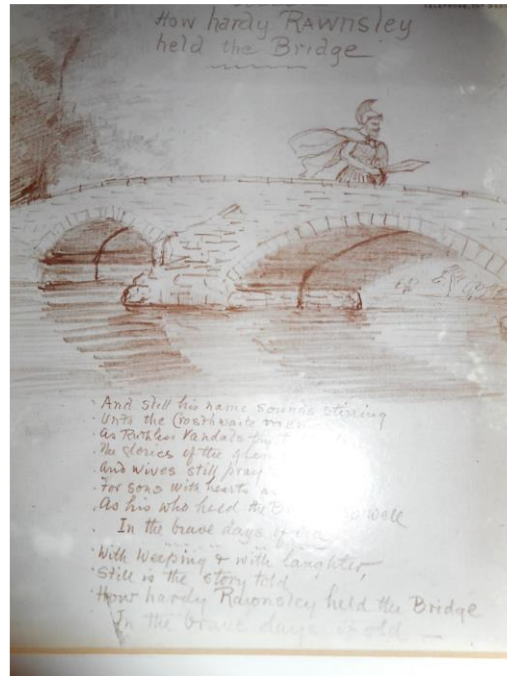 How hardy RAWNSLEY
held the Bridge
And still his name sounds stirring
Unto the Crosthwaite
As Ruthless Vandals
The glories of the
And wives still pray
For sons with hearts
As his who held the well
In the brave days of
With weeping & with laughter,
Still is the story told
How hardy Rawnsley held the Bridge
In the brave days of old